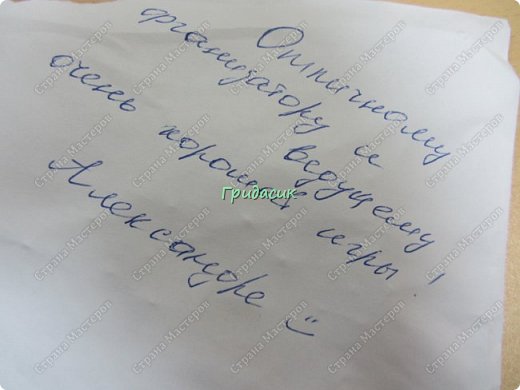 Отличному
организатору и
ведущему
очень хорошей игры!
Александре
Гридасик
Страна Мастеров